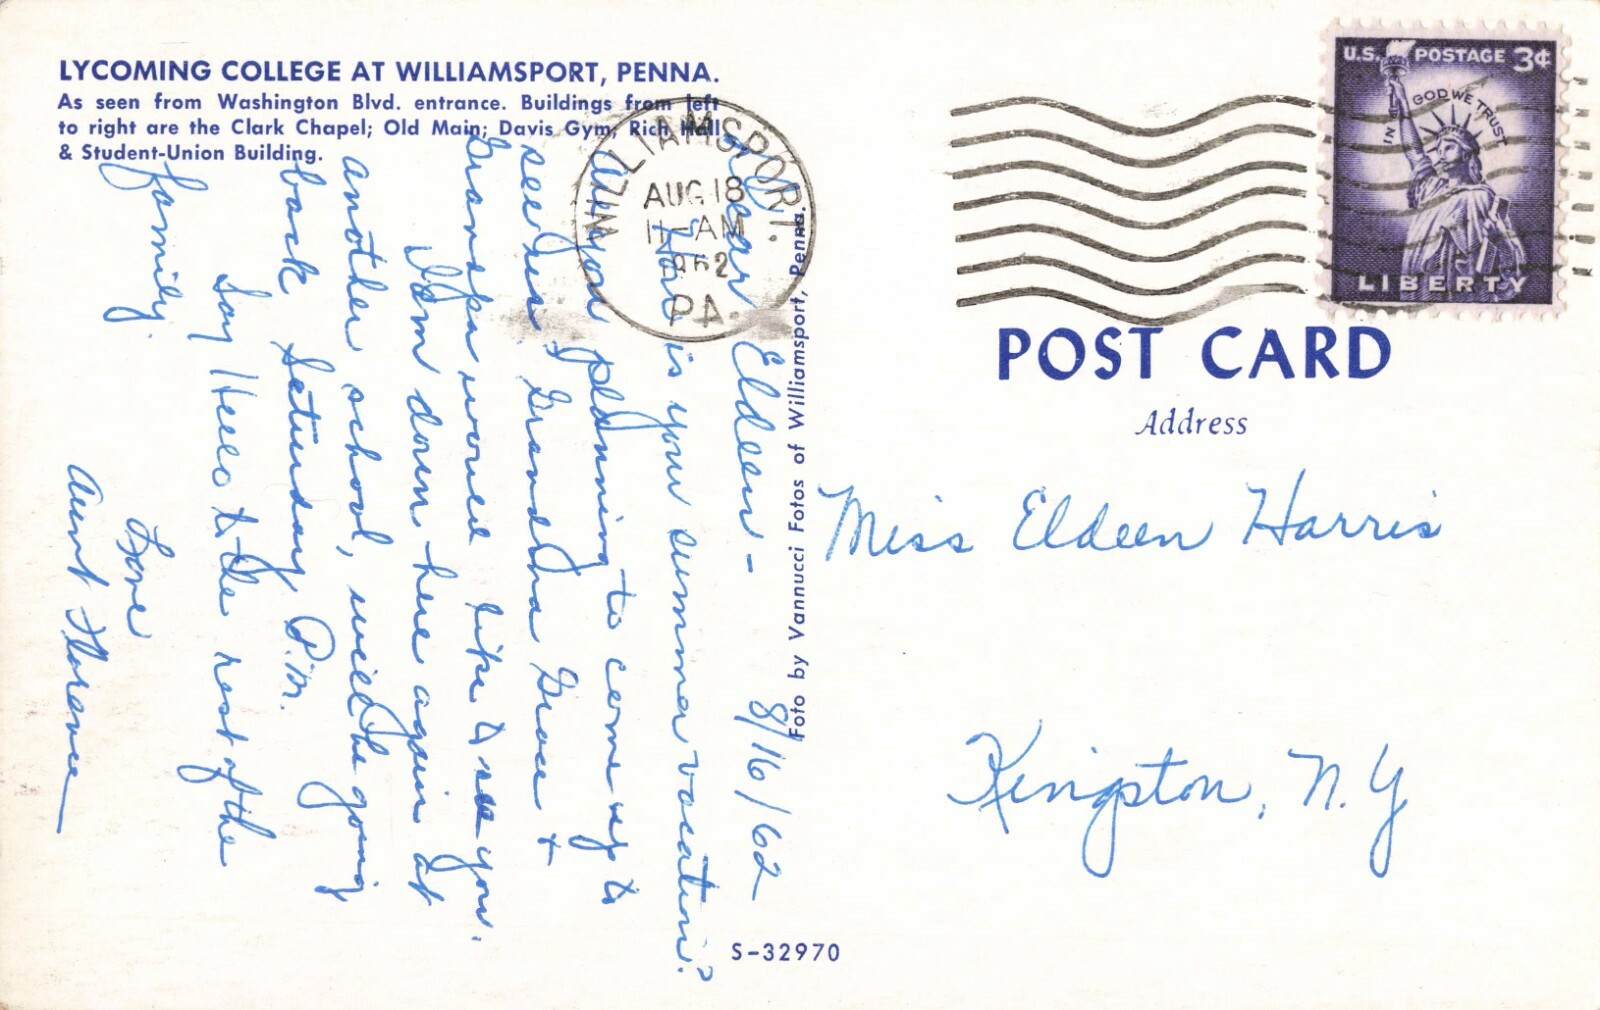 LYCOMING COLLEGE AT WILLIAMSPORT, PENNA.
As seen from Washington Blvd. entrance. Buildings from left
to right are the Clark Chapel; Old Main; Davis Gym, Rich Hall
& Student-Union Building.
Dear Eldeen - 8/16/62
How is your summer vacation?
Are you planning to come up to
see us? Grandma Grace &
Grandpa would like to see you.
I am down here again at
another school, will be going
back Saturday P.M.
Say Hello to the rest of the
family.
Love
Aunt Florence
WILLIAMSPORT.
AUG 18
11-AM
1962
PA.
U.S. POSTAGE 3¢
IN GOD WE TRUST
LIBERTY
POST CARD
Address
Miss Eldeen Harris
Kingston, N.Y
Foto by Vannucci Fotos of Williamsport, Penna.
S-32970